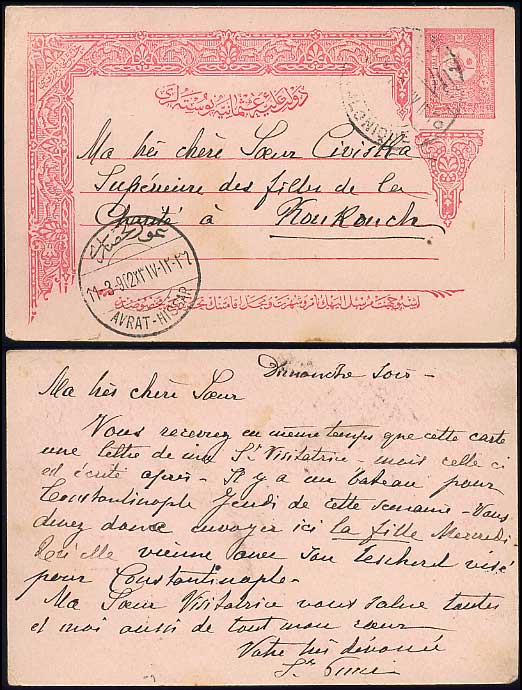 دولت علیهٔ عثمانیه پوسته لری
Ma très chère Sœur
Supérieure des filles de la
Charité à Koukouch
11-3-902
AVRAT-HISSAR
Dimanche soir -
Ma très chère Sœur
Vous recevrez en même temps que cette carte
une lettre de ma Sr Visitatrice - mais celle ci
est écrite après - Il y a un bateau pour
Constantinople Jeudi de cette semaine - Vous
devez donc envoyer ici la fille Mercredi -
elle vienne avec son Teskeret visé
pour Constantinople -
Ma Sœur Visitatrice vous salue toutes
et moi aussi de tout mon cœur
Votre très dévouée
Sr